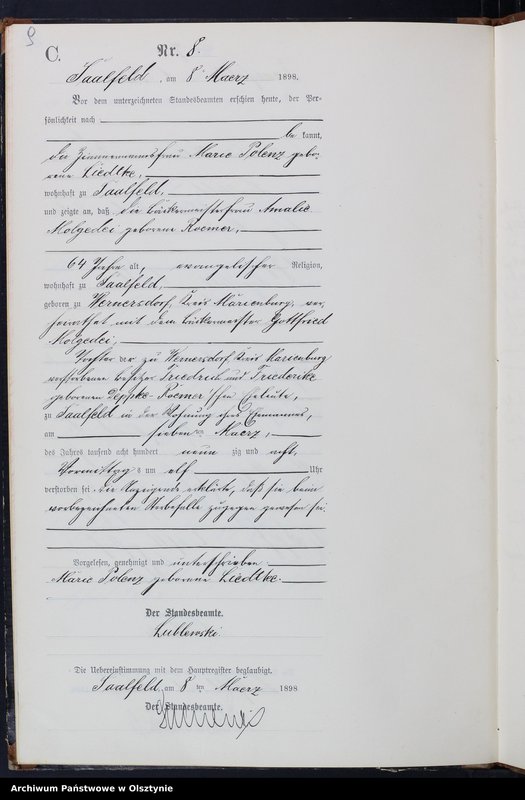 9
C.
Nr. 8.
Saalfeld, am 8 Maerz 1898.
Vor dem unterzeichneten Standesbeamten erschien heute, der Per-
sönlichkeit nach
be kannt,
die Zimmermannsfrau Marie Polenz gebo-
rene Liedtke,
wohnhaft zu Saalfeld,
und zeigte an, daß die Bäckermeisterfrau Amalie
Kolgedei geborene Roemer,
64 Jahre alt, evangelischer Religion,
wohnhaft zu Saalfeld,
geboren zu Wernersdorf, Kreis Marienburg, ver-
heirathet mit dem Bäckermeister Gottfried
Kolgedei,
Tochter der zu Wernersdorf, Kreis Marienburg
verstorbenen Besitzer Friedrich und Friederike
geborenen Roemer'schen Eheleute,
zu Saalfeld in der Wohnung ihres Ehemannes,
am sieben ten Maerz,
des Jahres tausend acht hundert neun zig und acht,
Vormittags um elf Uhr
verstorben sei. Die Anzeigende erklärte, daß sie beim
vorbezeichneten Sterbefalle zugegen gewesen sei.
Vorgelesen, genehmigt und unterschrieben
Marie Polenz geborene Liedtke.
Der Standesbeamte.
Lublewski.
Die Uebereinstimmung mit dem Hauptregister beglaubigt.
Saalfeld, am 8 ten Maerz 1898
Der Standesbeamte.
Archiwum Państwowe w Olsztynie